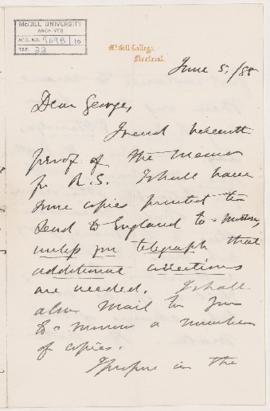 McGILL UNIVERSITY
ARCHIVES
ACC. NO.
REF.
McGill College,
Montreal.
June 5./88
Dear George,
I send herewith
proof of the Memoir
for R.S. I shall have
some copies printed to
send to England to-morrow,
unless you telegraph that
additional corrections
are needed. I shall
also mail to you
to-morrow a number
of copies.
I propose in the